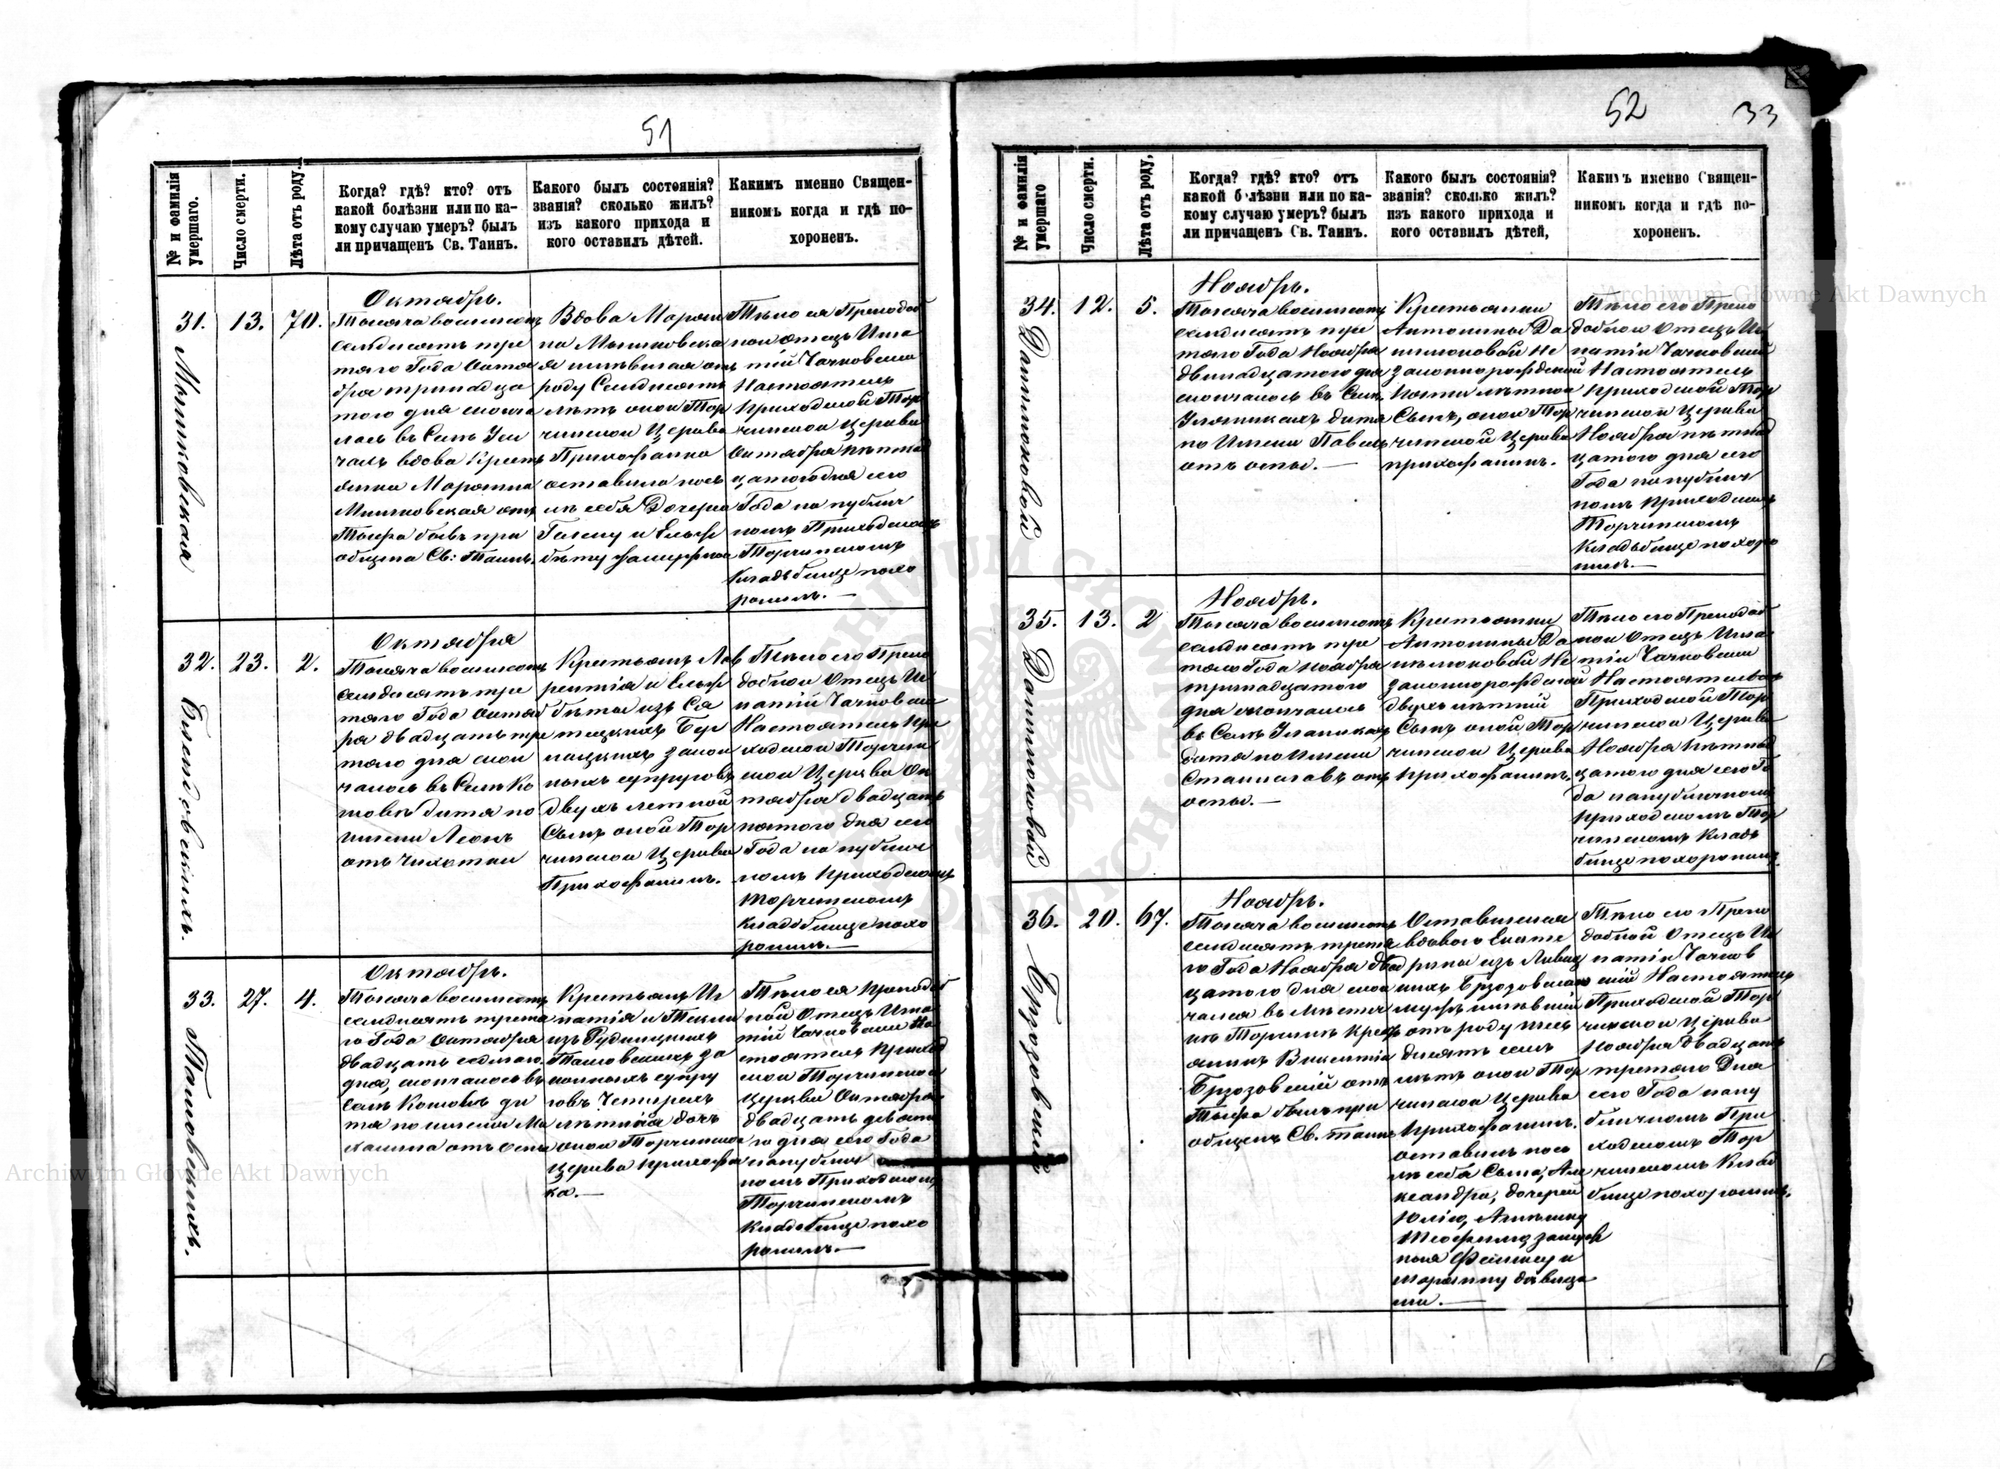 51
№ и фамилія умершаго.
Число смерти.
Лѣта отъ роду.
Когда? гдѣ? кто? отъ
какой болѣзни или по ка-
кому случаю умеръ? былъ
ли причащенъ Св. Таинъ.
Какого былъ состоянія?
званія? сколько жилъ?
изъ какого прихода и
кого оставилъ дѣтей.
Какимъ именно Священ-
никомъ когда и гдѣ по-
хороненъ.
31.
Мышковская
13.
70.
Октябрь.
Тысяча восемсотъ
семдисятъ тре
тяго Года Октя
бря тринадца
того дня сконча
лась въ Селѣ
вдова Крестъ
янка Маряна
Мышковская отъ
Тыфа бывъ при
общена Св: Таинъ.
Вдова Марян
на Мышковска
я имѣвшая отъ
роду Семдисятъ
лѣтъ оной Тор
чинской Церкви
Прихожанка
оставила нось
лѣ себя Дочери
Гелену и Ельж
бѣту замужная
Тѣло ея Преподоб
ной Отецъ Игна
тій Чачковски
Настоятель
приходской Тор
чинской Церкви
Октября пѣтнад
цатого дня сего
Года на публич
номъ Приходскомъ
Торчинскомъ
Кладбище похо
ронилъ.—
32.
23.
2.
Октября
Тысяча восемсотъ
семдисятъ тре
тяго Года Октяб
ря двадцать тре
тяго дня скон
чалось въ Селѣ Ко
шовѣ дитя по
имени Леонъ
отъ чихотки
Крестьянъ Лав
рентія и Ельж
бѣты изъ Ся
тецкихъ
закон
ныхъ супруговъ
двухъ летной
Сынъ оной Тор
чинской Церкви
Прихожанинъ.
Тѣло его Препо
добной Отецъ Иг
натій Чачковски
Настоятель При
ходской Торчин
ской Церкви Ок
тября двадцать
пятого дня сего
Года на публич
номъ Приходскомъ
Торчинскомъ
Кладбище похо
ронилъ.—
33.
27.
4.
Октябрь.
Тысяча восемсотъ
семдисятъ третя
го Года Октября
двадцать седмого
дня, скончалось въ
Селѣ Кошовѣ ди
тя по имени Ма
отъ Оспы
Крестьянъ Иг
натія и Текли
изъ Рудницкихъ
за
конныхъ супру
говъ Четырехъ
лѣтняя дочь
оной Торчинской
Церкви прихожа
ка.—
Тѣло ея преподоб
ной Отецъ Игна
тій Чачковски На
стоятель приход
ской Торчинской
Церкви Октября
двадцать девята
го дня сего Года
на публич
номъ Приходскомъ
Торчинскомъ
Кладбище похо
ронилъ.—
52
33
№ и фамилія умершаго
Число смерти.
Лѣта отъ роду,
Когда? гдѣ? кто? отъ
какой болѣзни или по ка-
кому случаю умеръ? былъ
ли причащенъ Св. Таинъ.
Какого былъ состоянія?
званія? сколько жилъ?
изъ какого прихода и
кого оставилъ дѣтей,
Какимъ именно Священ-
никомъ когда и гдѣ по-
хороненъ.
34.
Данилюковой
12.
5.
Ноябрь.
Тысяча восемсотъ
семдисятъ тре
тяго Года Ноября
двинадцатого дня
скончалось въ Селѣ
Уляникахъ дитя
по Имени Павелъ
отъ оспы.—
Крестьянки
Антонины Да
нилюковой Не
законнорожденой
пяти лѣтной
Сынъ, оной Тор
чинской Церкви
прихожанинъ.
Тѣло его Препо
добной Отецъ Иг
натій Чачковский
Настоятель
приходской Тор
чинской Церкви
Ноября пѣтнад
цатого дня сего
Года на публич
номъ Приходскомъ
Торчинскомъ
Кладбище похоро
нилъ.—
35.
Данилюковой
13.
2
Ноябрь.
Тысяча восемсотъ
семдисятъ тре
тяго Года Ноября
тринадцатого
дня скончалось
въ Селѣ Уляникахъ
дитя по Имени
Станиславъ отъ
оспы.—
Крестьянки
Антонины Да
нилюковой Не
законнорожденой
двухъ лѣтній
Сынъ оной Тор
чинской Церкви
прихожанинъ.
Тѣло его Преподоб
ной Отецъ Игна
тій Чачковски
Настоятель
Приходской Тор
чинской Церкви
Ноября пѣтнад
цатого дня сего Го
да на публичномъ
приходскомъ Тор
чинскомъ Кладъ
бище похоронилъ.
36.
Брзозовский
20.
67.
Ноябрь.
Тысяча восемсотъ
семдисятъ третя
го Года Ноября двад
цатого дня скон
чался въ Мѣстеч
кѣ Торчинѣ Крест
янинъ Викентій
Брзозовскій отъ
Тыфа бывъ при
общенъ Св. таинъ
Оставившия
вдовою Екате
рины изъ
Брзозовская
мужъ имѣвшій
отъ роду шес
дисятъ семь
лѣтъ оной Тор
чинской Церкви
прихожанинъ.
оставилъ пос
лѣ себя Сына, Але
ксандра, дочерей
Юлію, Анѣлину
Теофилю замуж
ныя Феликсу и
марянну дѣвица
ми.—
Тѣло его Препо
добной Отецъ Иг
натій Чачков
скій Настоятель
Приходской Тор
чинской Церкви
Ноября двадцать
третяго Дня
сего Года на пу
бличномъ При
ходскомъ Тор
чинскомъ Клад
бище похоронилъ.
Archiwum Główne Akt Dawnych
Archiwum Główne Akt Dawnych